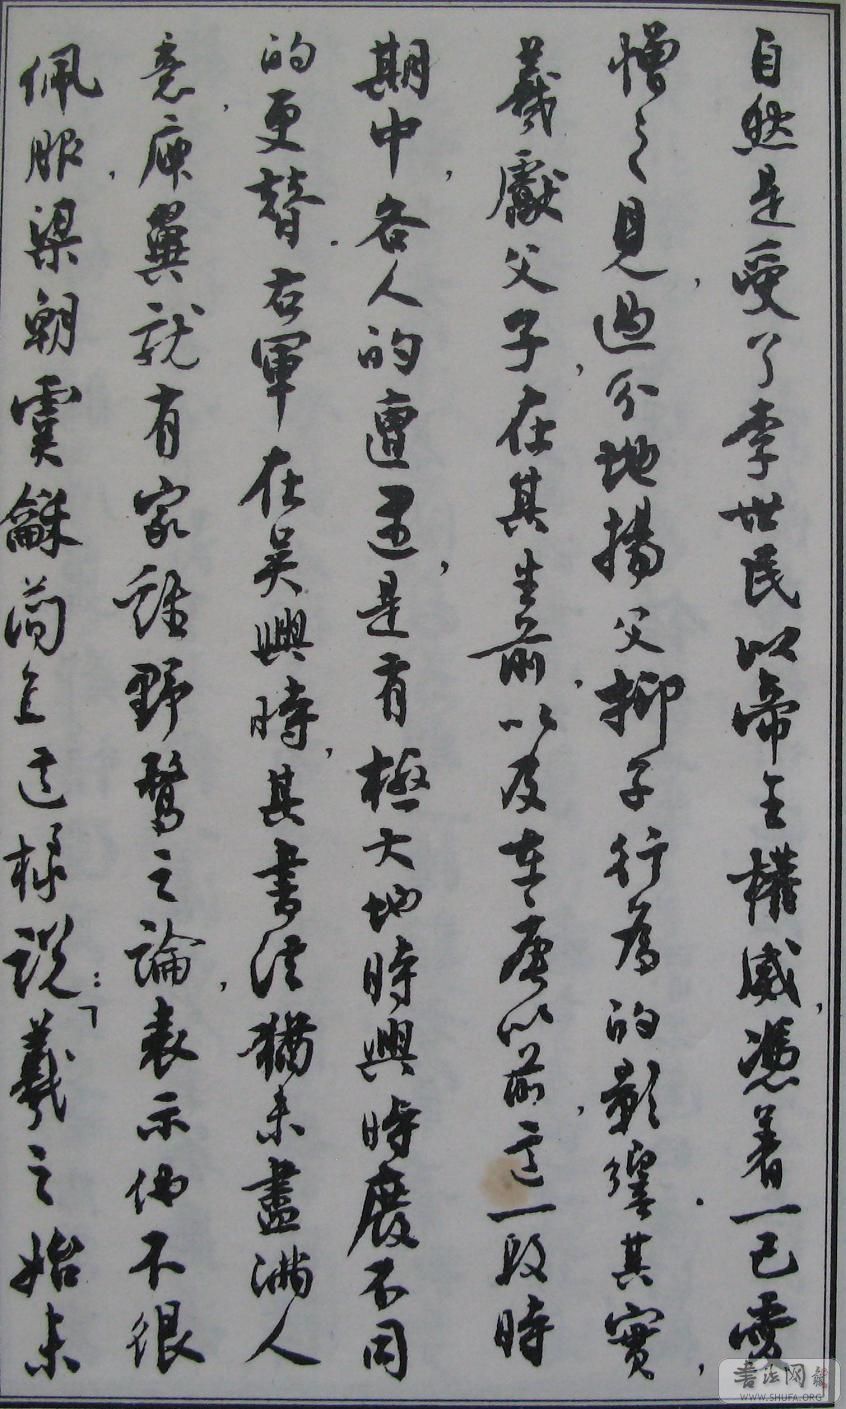 自然是受了李世民以帝王權威,憑着一己愛
憎之見,過分地揚父抑子行為的影響.其實,
羲獻父子,在其生前,以及在唐以前,這一段時
期中,各人的遭遇,是有極大地時興時廢不同
的更替.右軍在吳興時,其書法猶未盡滿人
意,庾翼就有家雞野鶩之論,表示他不很
佩服,梁朝虞龢簡直這樣說:「羲之始未
書法网
WWW.SHUFA.ORG